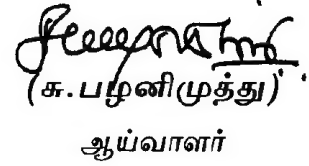 (சு.பழனிமுத்து)
ஆய்வாளர்